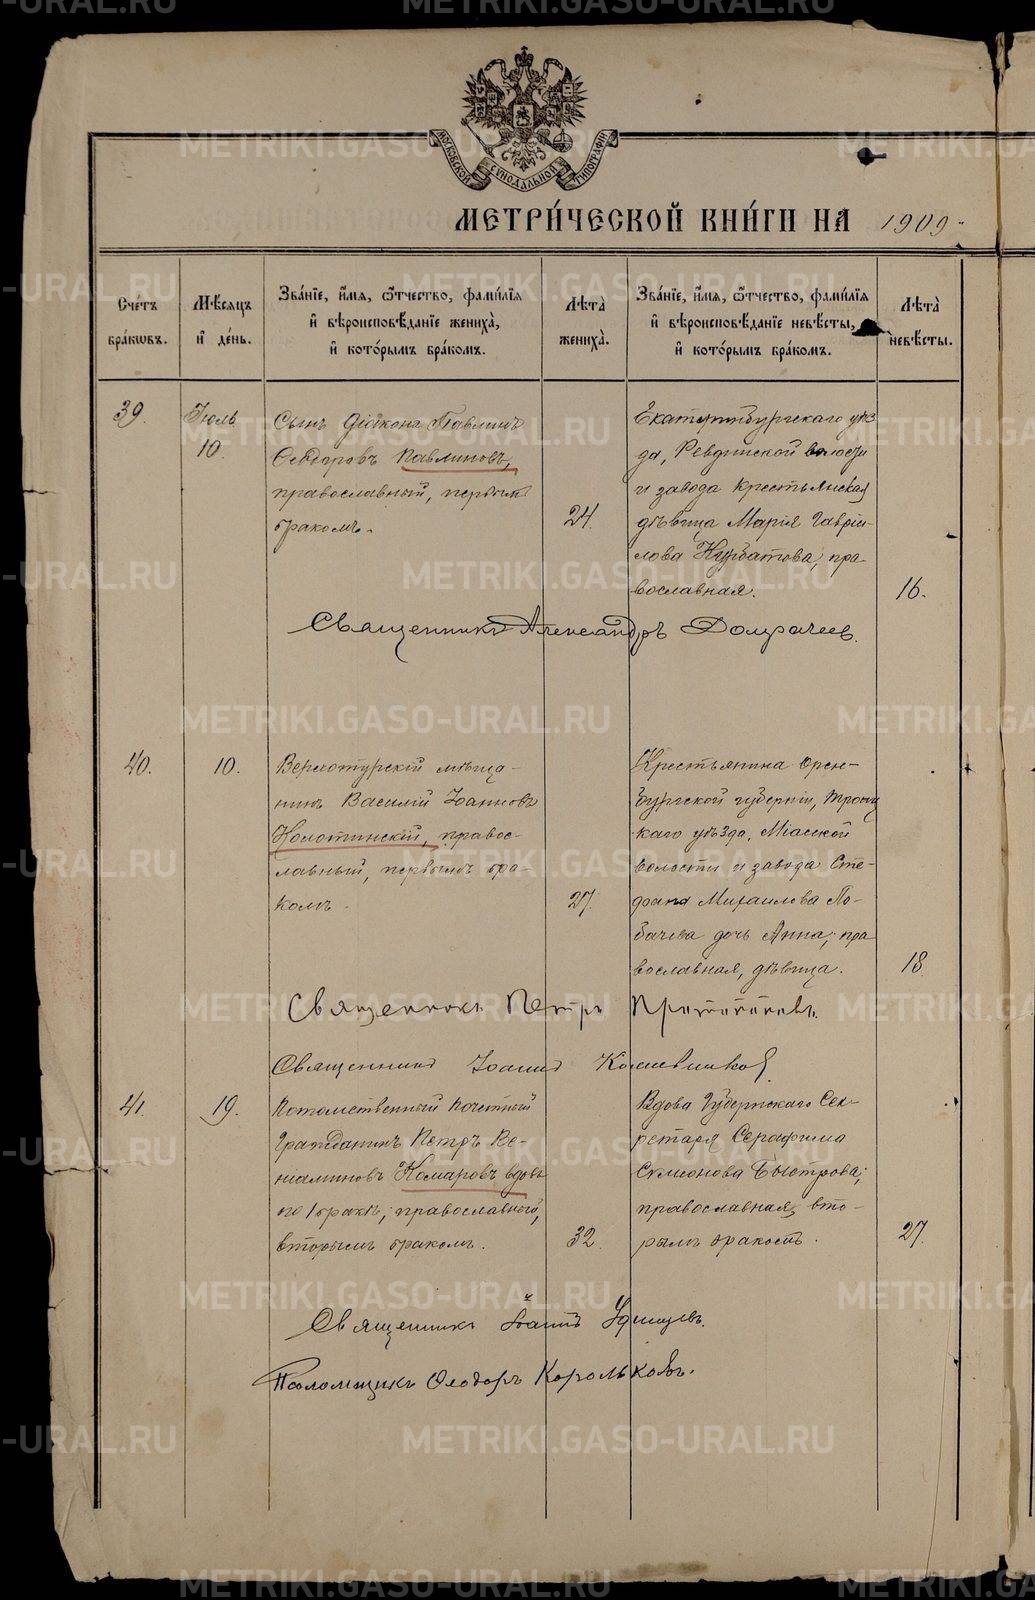 МОСКОВСКОЙ СѴНОДАЛЬНОЙ ТИПОГРАФІИ
МЕТРИ́ЧЕСКОЙ КНИ́ГИ НА 1909
Счетъ бра́ковъ.
Мѣсяцъ и де́нь.
Зва́ніе, и́мя, ѻ҆́тчество, фамилія и вѣроисповѣ́даніе жениха̀, и кото́рымъ бра́комъ.
Лѣта̀ жениха̀.
Зва́ніе, и́мя, ѻ҆́тчество, фамилія и вѣроисповѣ́даніе невѣ́сты, и кото́рымъ бра́комъ.
Лѣта̀ невѣ́сты.
39.
Іюль
10.
Сынъ діакона Павлинъ
Ѳедоровъ Павлиновъ,
православный, первымъ
бракомъ.
24.
Екатеринбургскаго уѣз
да, Ревдинской волости
и завода крестьянская
дѣвица Марія Гаврiи-
лова Курбатова, пра-
вославная.
16.
Священникъ Александръ Домрачеев.
40.
10.
Верхотурскій мѣща-
нинъ Василій Іоанновъ
Колотинскій, правос-
лавный, первымъ бра-
комъ.
27.
Крестьянина Орен-
бургской губерніи, Троиц
каго уѣзда, Міасской
волости и завода Сте-
фана Михаилова По-
бачева дочь Анна, пра
вославная, дѣвица.
18.
Священникъ Петръ
Священникъ Іоаннъ
41.
19.
Потомственный почетный
гражданинъ Петръ Ве-
ніаминовъ Комаровъ вдовъ
по 1 бракѣ, православный,
вторымъ бракомъ.
32.
Вдова Губернскаго Сек-
ретаря Серафима
Симеонова Быстрова,
православная, вто-
рымъ бракомъ.
27.
Священникъ Іоаннъ Уфимцевъ.
Псаломщикъ Ѳеодоръ Корольковъ.
METRIKI.GASO-URAL.RU